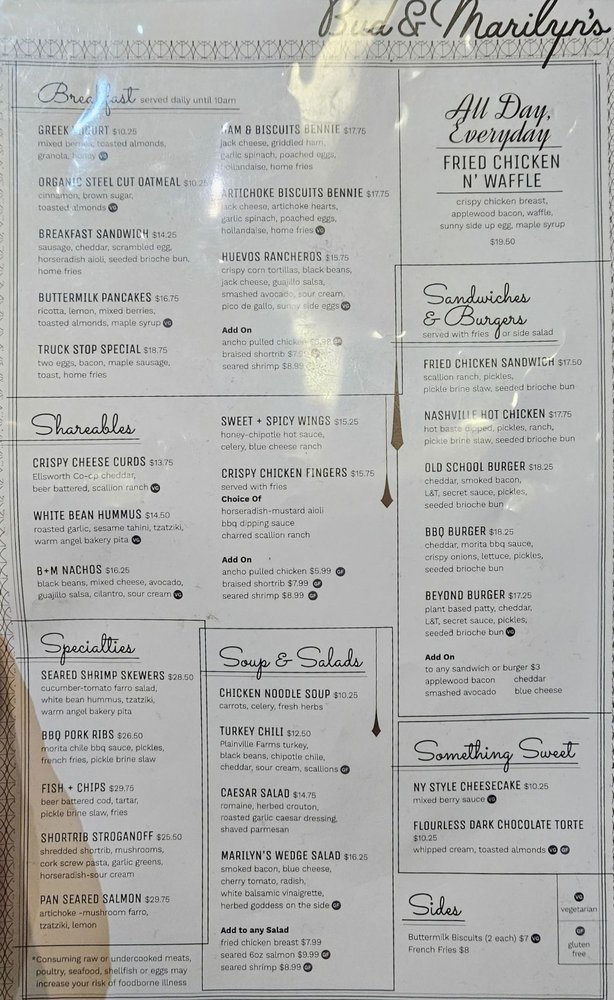 Bud & Marilyn's
Breakfast served daily until 10am
GREEK YOGURT $10.25
mixed berries, toasted almonds,
granola, honey VG
ORGANIC STEEL CUT OATMEAL $10.25
cinnamon, brown sugar,
toasted almonds VG
BREAKFAST SANDWICH $14.25
sausage, cheddar, scrambled egg,
horseradish aioli, seeded brioche bun,
home fries
BUTTERMILK PANCAKES $16.75
ricotta, lemon, mixed berries,
toasted almonds, maple syrup VG
TRUCK STOP SPECIAL $18.75
two eggs, bacon, maple sausage,
toast, home fries
HAM & BISCUITS BENNIE $17.75
jack cheese, griddled ham,
garlic spinach, poached eggs,
hollandaise, home fries
ARTICHOKE BISCUITS BENNIE $17.75
jack cheese, artichoke hearts,
garlic spinach, poached eggs,
hollandaise, home fries VG
HUEVOS RANCHEROS $15.75
crispy corn tortillas, black beans,
jack cheese, guajillo salsa,
smashed avocado, sour cream,
pico de gallo, sunny side eggs VG
Add On
ancho pulled chicken $5.99 GF
braised shortrib $7.99 GF
seared shrimp $8.99
All Day,
Everyday
FRIED CHICKEN
N' WAFFLE
crispy chicken breast,
applewood bacon, waffle,
sunny side up egg, maple syrup
$19.50
Sandwiches
& Burgers
served with fries or side salad
FRIED CHICKEN SANDWICH $17.50
scallion ranch, pickles,
pickle brine slaw, seeded brioche bun
NASHVILLE HOT CHICKEN $17.75
hot baste dipped, pickles, ranch,
pickle brine slaw, seeded brioche bun
OLD SCHOOL BURGER $18.25
cheddar, smoked bacon,
L&T, secret sauce, pickles,
seeded brioche bun
BBQ BURGER $18.25
cheddar, morita bbq sauce,
crispy onions, lettuce, pickles,
seeded brioche bun
BEYOND BURGER $17.25
plant based patty, cheddar,
L&T, secret sauce, pickles,
seeded brioche bun VG
Add On
to any sandwich or burger $3
applewood bacon cheddar
smashed avocado blue cheese
Shareables
CRISPY CHEESE CURDS $13.75
Ellsworth Co-op cheddar,
beer battered, scallion ranch VG
WHITE BEAN HUMMUS $14.50
roasted garlic, sesame tahini, tzatziki,
warm angel bakery pita VG
B+M NACHOS $16.25
black beans, mixed cheese, avocado,
guajillo salsa, cilantro, sour cream VG
SWEET + SPICY WINGS $15.25
honey-chipotle hot sauce,
celery, blue cheese ranch
CRISPY CHICKEN FINGERS $15.75
served with fries
Choice Of
horseradish-mustard aioli
bbq dipping sauce
charred scallion ranch
Add On
ancho pulled chicken $5.99 GF
braised shortrib $7.99 GF
seared shrimp $8.99 GF
Specialties
SEARED SHRIMP SKEWERS $28.50
cucumber-tomato farro salad,
white bean hummus, tzatziki,
warm angel bakery pita
BBQ PORK RIBS $26.50
morita chile bbq sauce, pickles,
french fries, pickle brine slaw
FISH + CHIPS $29.75
beer battered cod, tartar,
pickle brine slaw, fries
SHORTRIB STROGANOFF $25.50
shredded shortrib, mushrooms,
cork screw pasta, garlic greens,
horseradish-sour cream
PAN SEARED SALMON $29.75
artichoke -mushroom farro,
tzatziki, lemon
*Consuming raw or undercooked meats,
poultry, seafood, shellfish or eggs may
increase your risk of foodborne illness
Soup & Salads
CHICKEN NOODLE SOUP $10.25
carrots, celery, fresh herbs
TURKEY CHILI $12.50
Plainville Farms turkey,
black beans, chipotle chile,
cheddar, sour cream, scallions GF
CAESAR SALAD $14.75
romaine, herbed crouton,
roasted garlic caesar dressing,
shaved parmesan
MARILYN'S WEDGE SALAD $16.25
smoked bacon, blue cheese,
cherry tomato, radish,
white balsamic vinaigrette,
herbed goddess on the side GF
Add to any Salad
fried chicken breast $7.99
seared 6oz salmon $9.99 GF
seared shrimp $8.99 GF
Something Sweet
NY STYLE CHEESECAKE $10.25
mixed berry sauce VG
FLOURLESS DARK CHOCOLATE TORTE
$10.25
whipped cream, toasted almonds VG GF
Sides
Buttermilk Biscuits (2 each) $7 VG
French Fries $8
VG
vegetarian
GF
gluten
free